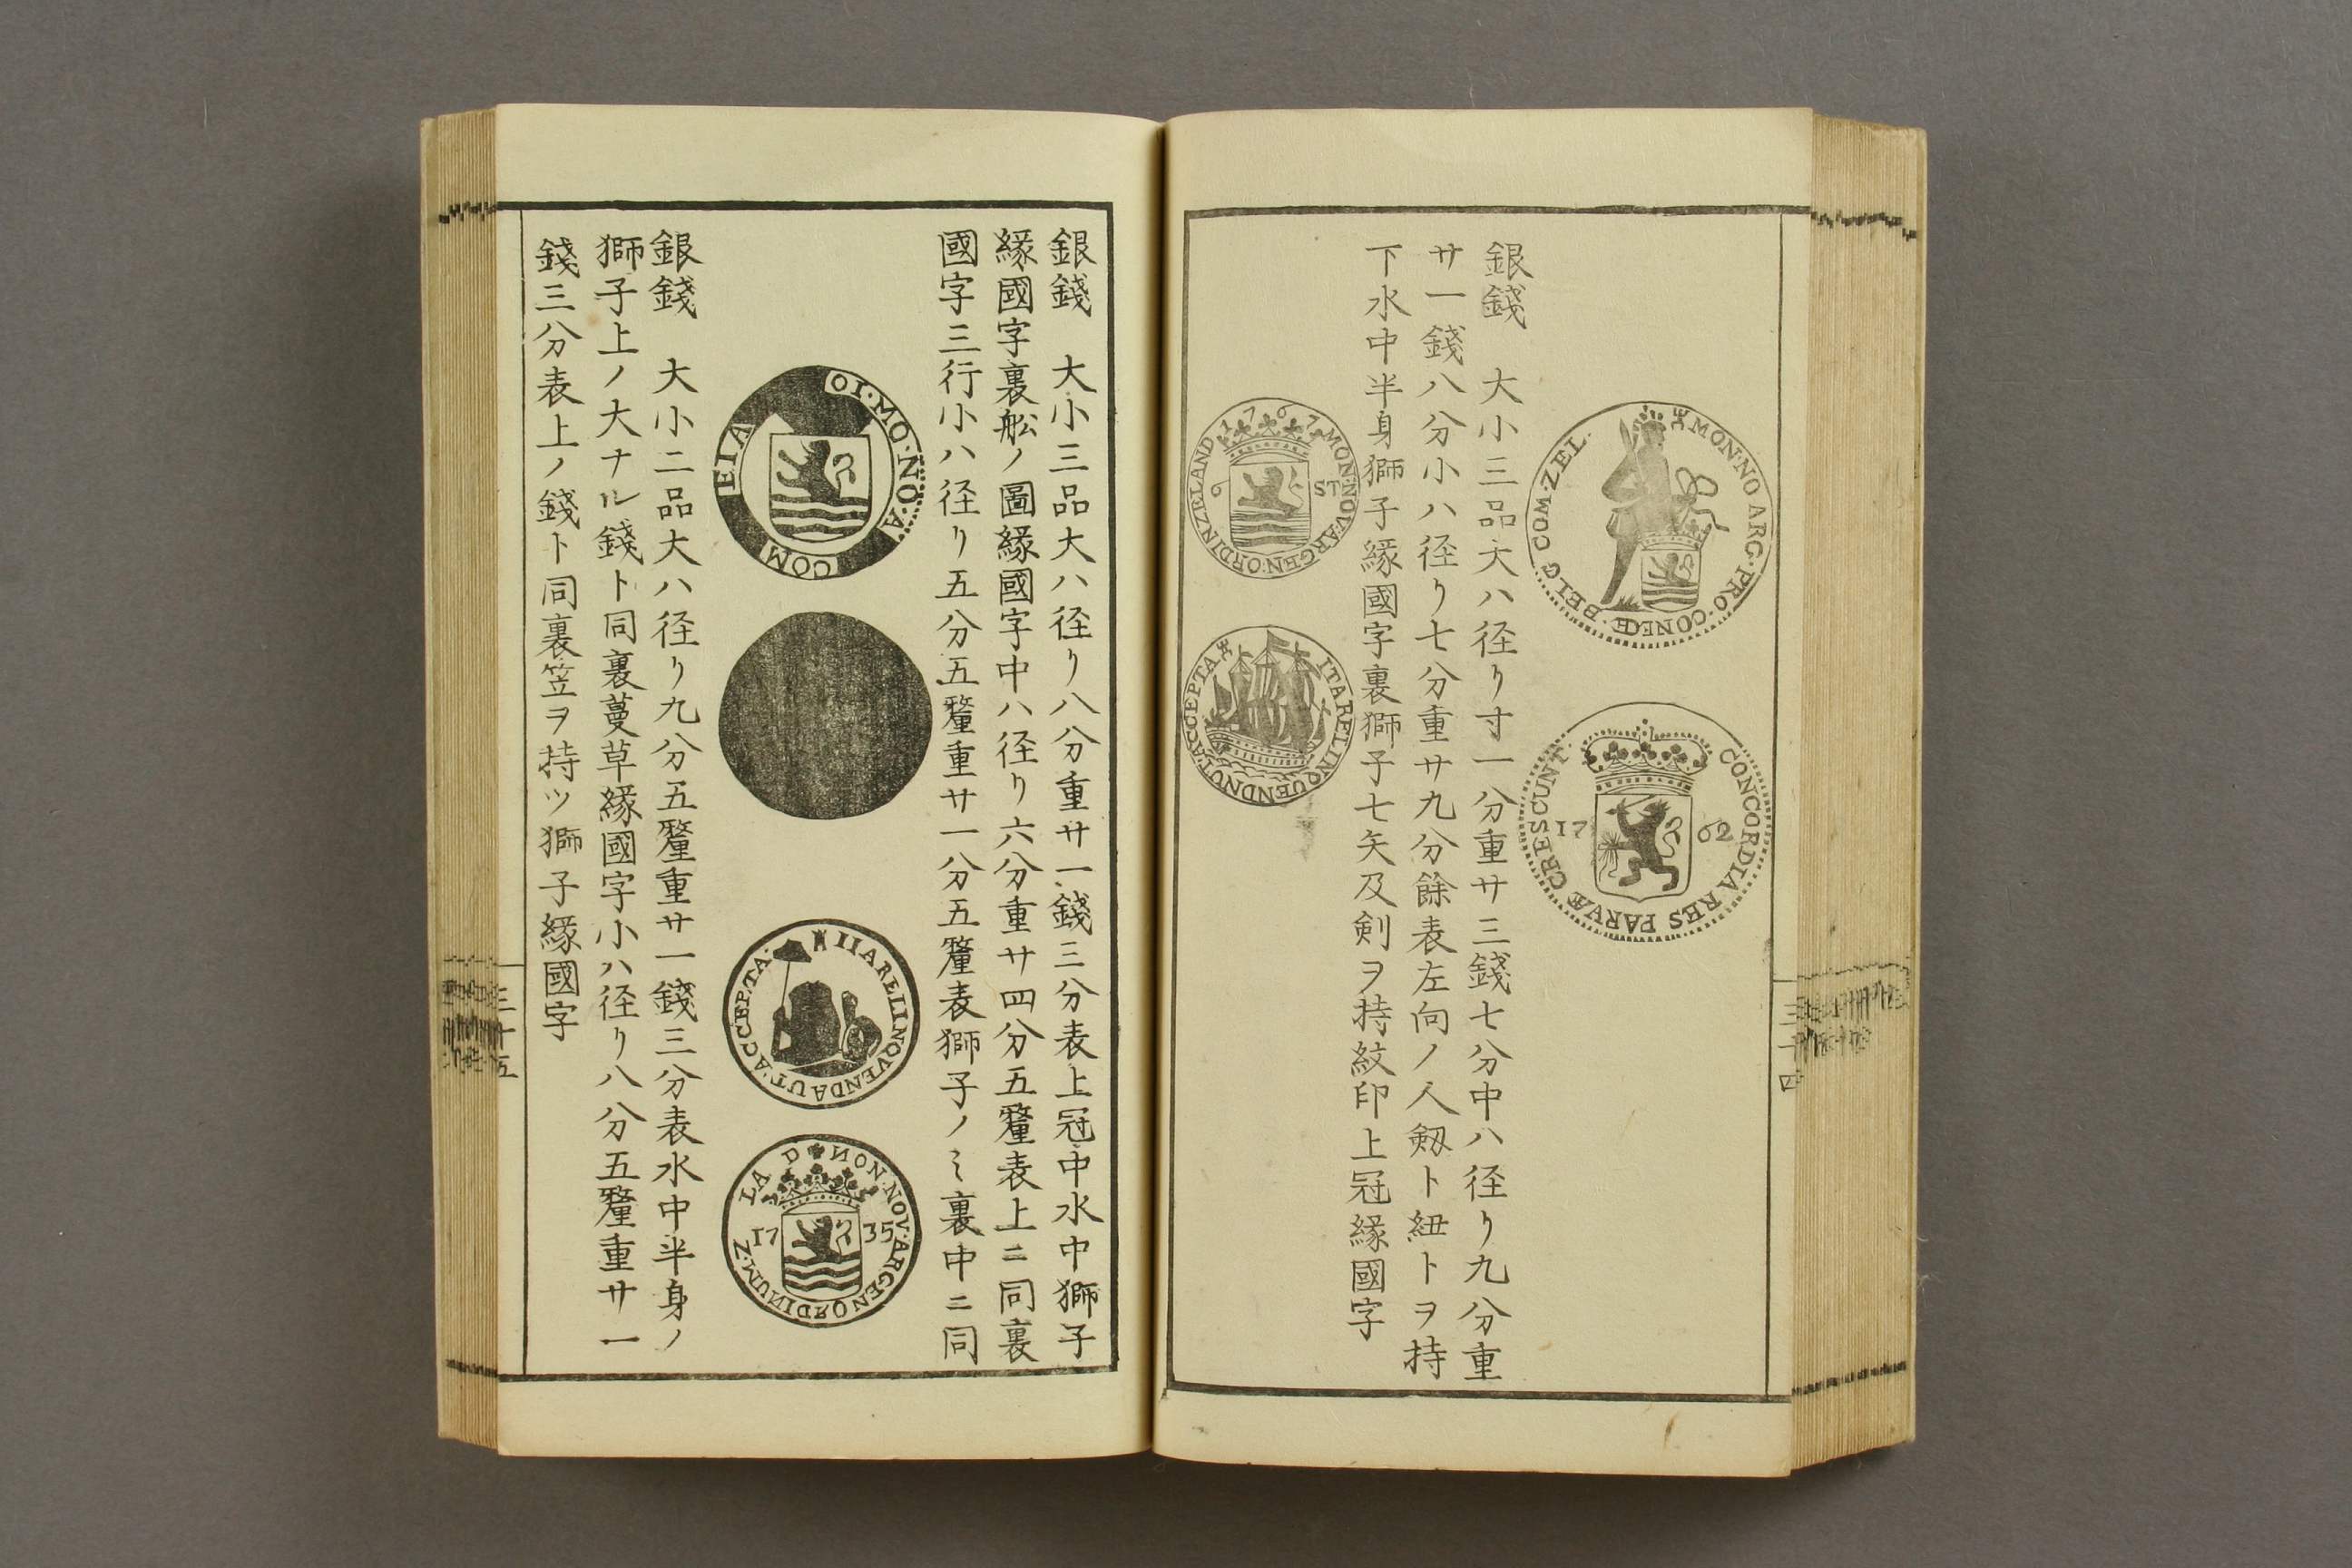 MON·NO ARG·PRO·CONFŒ·BELG COM·ZEL·
CONCORDIA RES PARVÆ CRESCUNT·
17 62
銀錢　大小三品大ハ径リ寸一分重サ三錢七分中ハ径リ九分重
サ一錢八分小ハ径リ七分重サ九分餘表左向ノ人劔ト紐トヲ持
下水中半身獅子緣國字裏獅子七矢及剣ヲ持紋印上冠緣國字
1767 MON·NOV·ARGEN·ORDIN ZELAND
6 ST
ITA RELINQUENDNUT·ACCEPTA
三十四
銀錢　大小三品大ハ径リ八分重サ一錢三分表上冠中水中獅子
緣國字裏舩ノ圖緣國字中ハ径リ六分重サ四分五釐表上ニ同裏
國字三行小ハ径リ五分五釐重サ一分五釐表獅子ノミ裏中ニ同
OI·MO·NO·A COM EIA
IIARELINQVENDAUT·ACCEPTA·
NON·NOV·ARGENORDINUM·Z LA D
17 35
銀錢　大小二品大ハ径リ九分五釐重サ一錢三分表水中半身ノ
獅子上ノ大ナル錢ト同裏蔓草緣國字小ハ径リ八分五釐重サ一
錢三分表上ノ錢ト同裏笠ヲ持ツ獅子緣國字
三十五